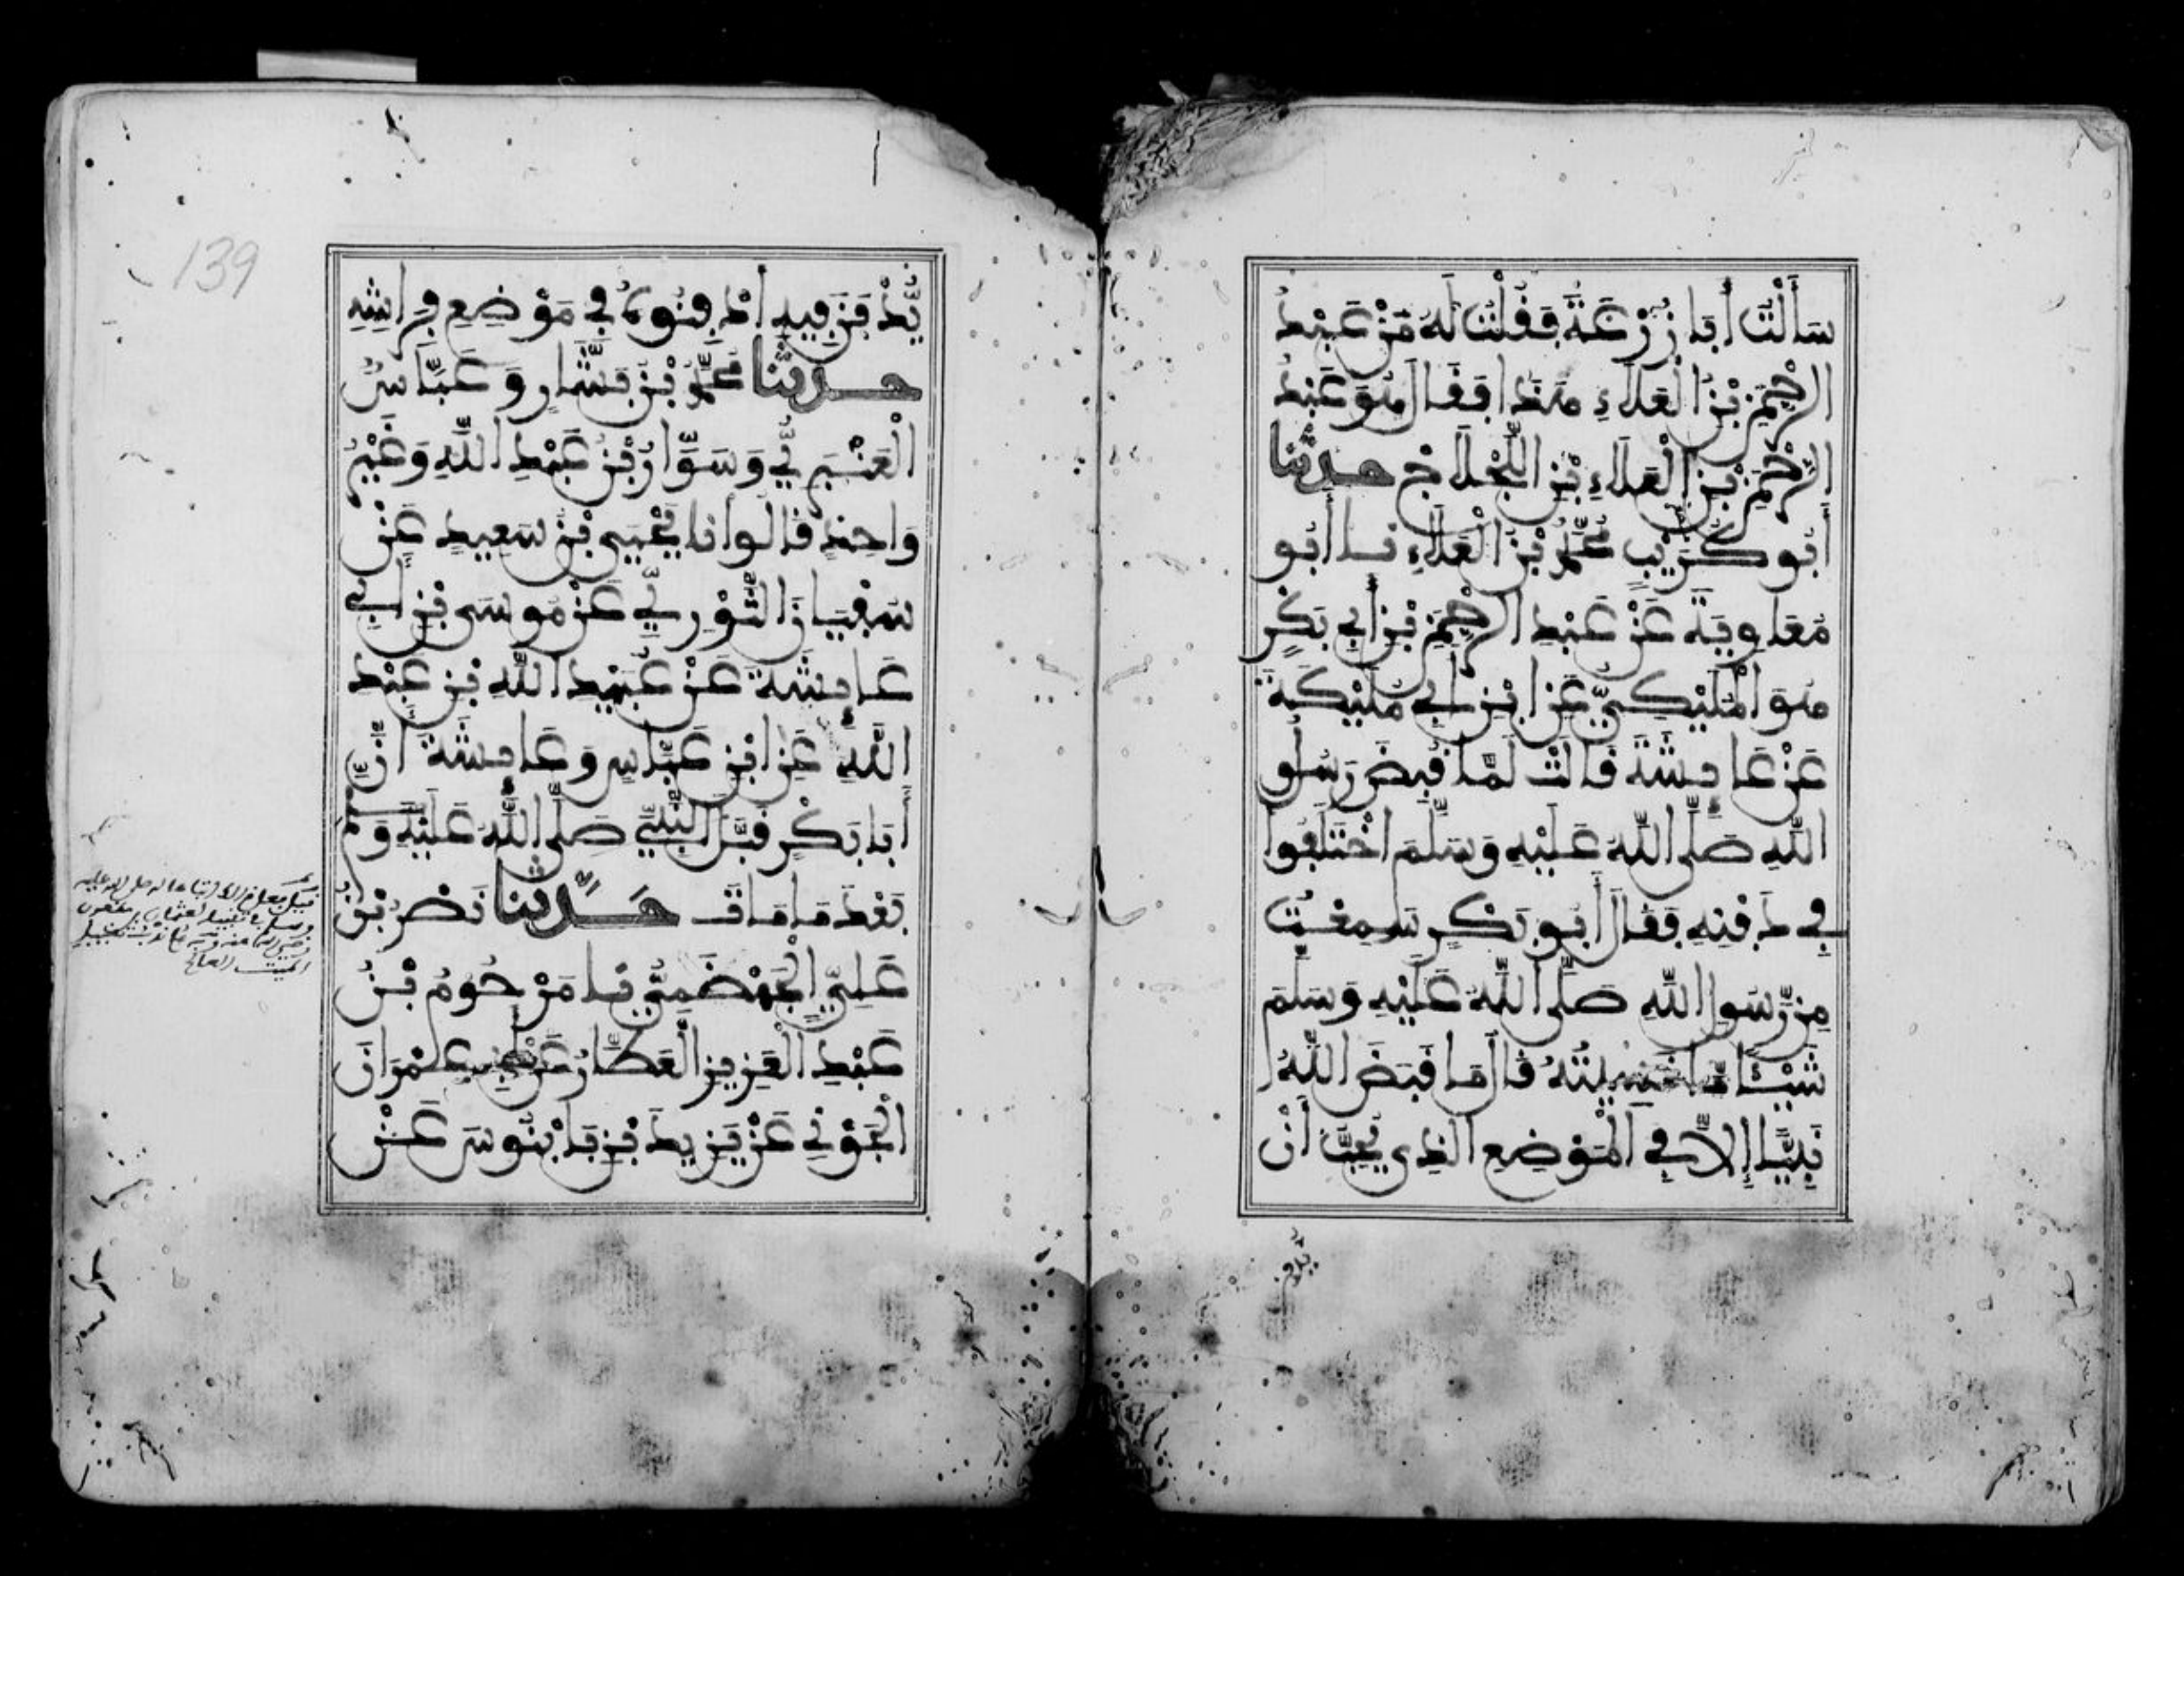 سَأَلْتُ أَبَا زُرْعَةَ فَقُلْتُ لَهُ مَنْ عَبْدُ
الرَّحْمٰنِ بْنُ الْعَلَاءِ هَذَا فَقَالَ هُوَ عَبْدُ
الرَّحْمٰنِ بْنُ الْعَلَاءِ بْنِ اللَّجْلَاجِ حدثنا
أَبُو كُرَيْبٍ مُحَمَّدُ بْنُ الْعَلَاءِ نا أَبُو
مُعَاوِيَةَ عَنْ عَبْدِ الرَّحْمٰنِ بْنِ أَبِي بَكْرٍ
هُوَ الْمُلَيْكِيُّ عَنِ ابْنِ أَبِي مُلَيْكَةَ
عَنْ عَائِشَةَ قَالَتْ لَمَّا قُبِضَ رَسُولُ
اللَّهِ صَلَّى اللَّهُ عَلَيْهِ وَسَلَّمَ اخْتَلَفُوا
فِي دَفْنِهِ فَقَالَ أَبُو بَكْرٍ سَمِعْتُ
مِن رَّسُولِ اللَّهِ صَلَّى اللَّهُ عَلَيْهِ وَسَلَّمَ
شَيْئًا مَا نَسِيتُهُ قَالَ مَا قَبَضَ اللَّهُ
نَبِيًّا إِلَّا فِي الْمَوْضِعِ الَّذِي يُحِبُّ أَنْ
يُدْفَنَ فِيهِ ادْفِنُوهُ فِي مَوْضِعِ فِرَاشِهِ
حدثنا مُحَمَّدُ بْنُ بَشَّارٍ وَعَبَّاسٌ
الْعَنْبَرِيُّ وَسَوَّارُ بْنُ عَبْدِ اللَّهِ وَغَيْرُ
وَاحِدٍ قَالُوا نا يَحْيَى بْنُ سَعِيدٍ عَنْ
سُفْيَانَ الثَّوْرِيِّ عَنْ مُوسَى بْنِ أَبِي
عَائِشَةَ عَنْ عُبَيْدِ اللَّهِ بْنِ عَبْدِ
اللَّهِ عَنِ ابْنِ عَبَّاسٍ وَعَائِشَةَ أَنَّ
أَبَا بَكْرٍ قَبَّلَ النَّبِيَّ صَلَّى اللَّهُ عَلَيْهِ وَسَلَّمَ
بَعْدَ مَا مَاتَ حَدَّثَنَا نَصْرُ بْنُ
عَلِيٍّ الْجَهْضَمِيُّ نا مَرْحُومُ بْنُ
عَبْدِ الْعَزِيزِ الْعَطَّارُ عَنْ أَبِي عِمْرَانَ
الْجَوْنِيِّ عَنْ يَزِيدَ بْنِ بَابْنُوسَ عَنْ
139
الميت الصالح